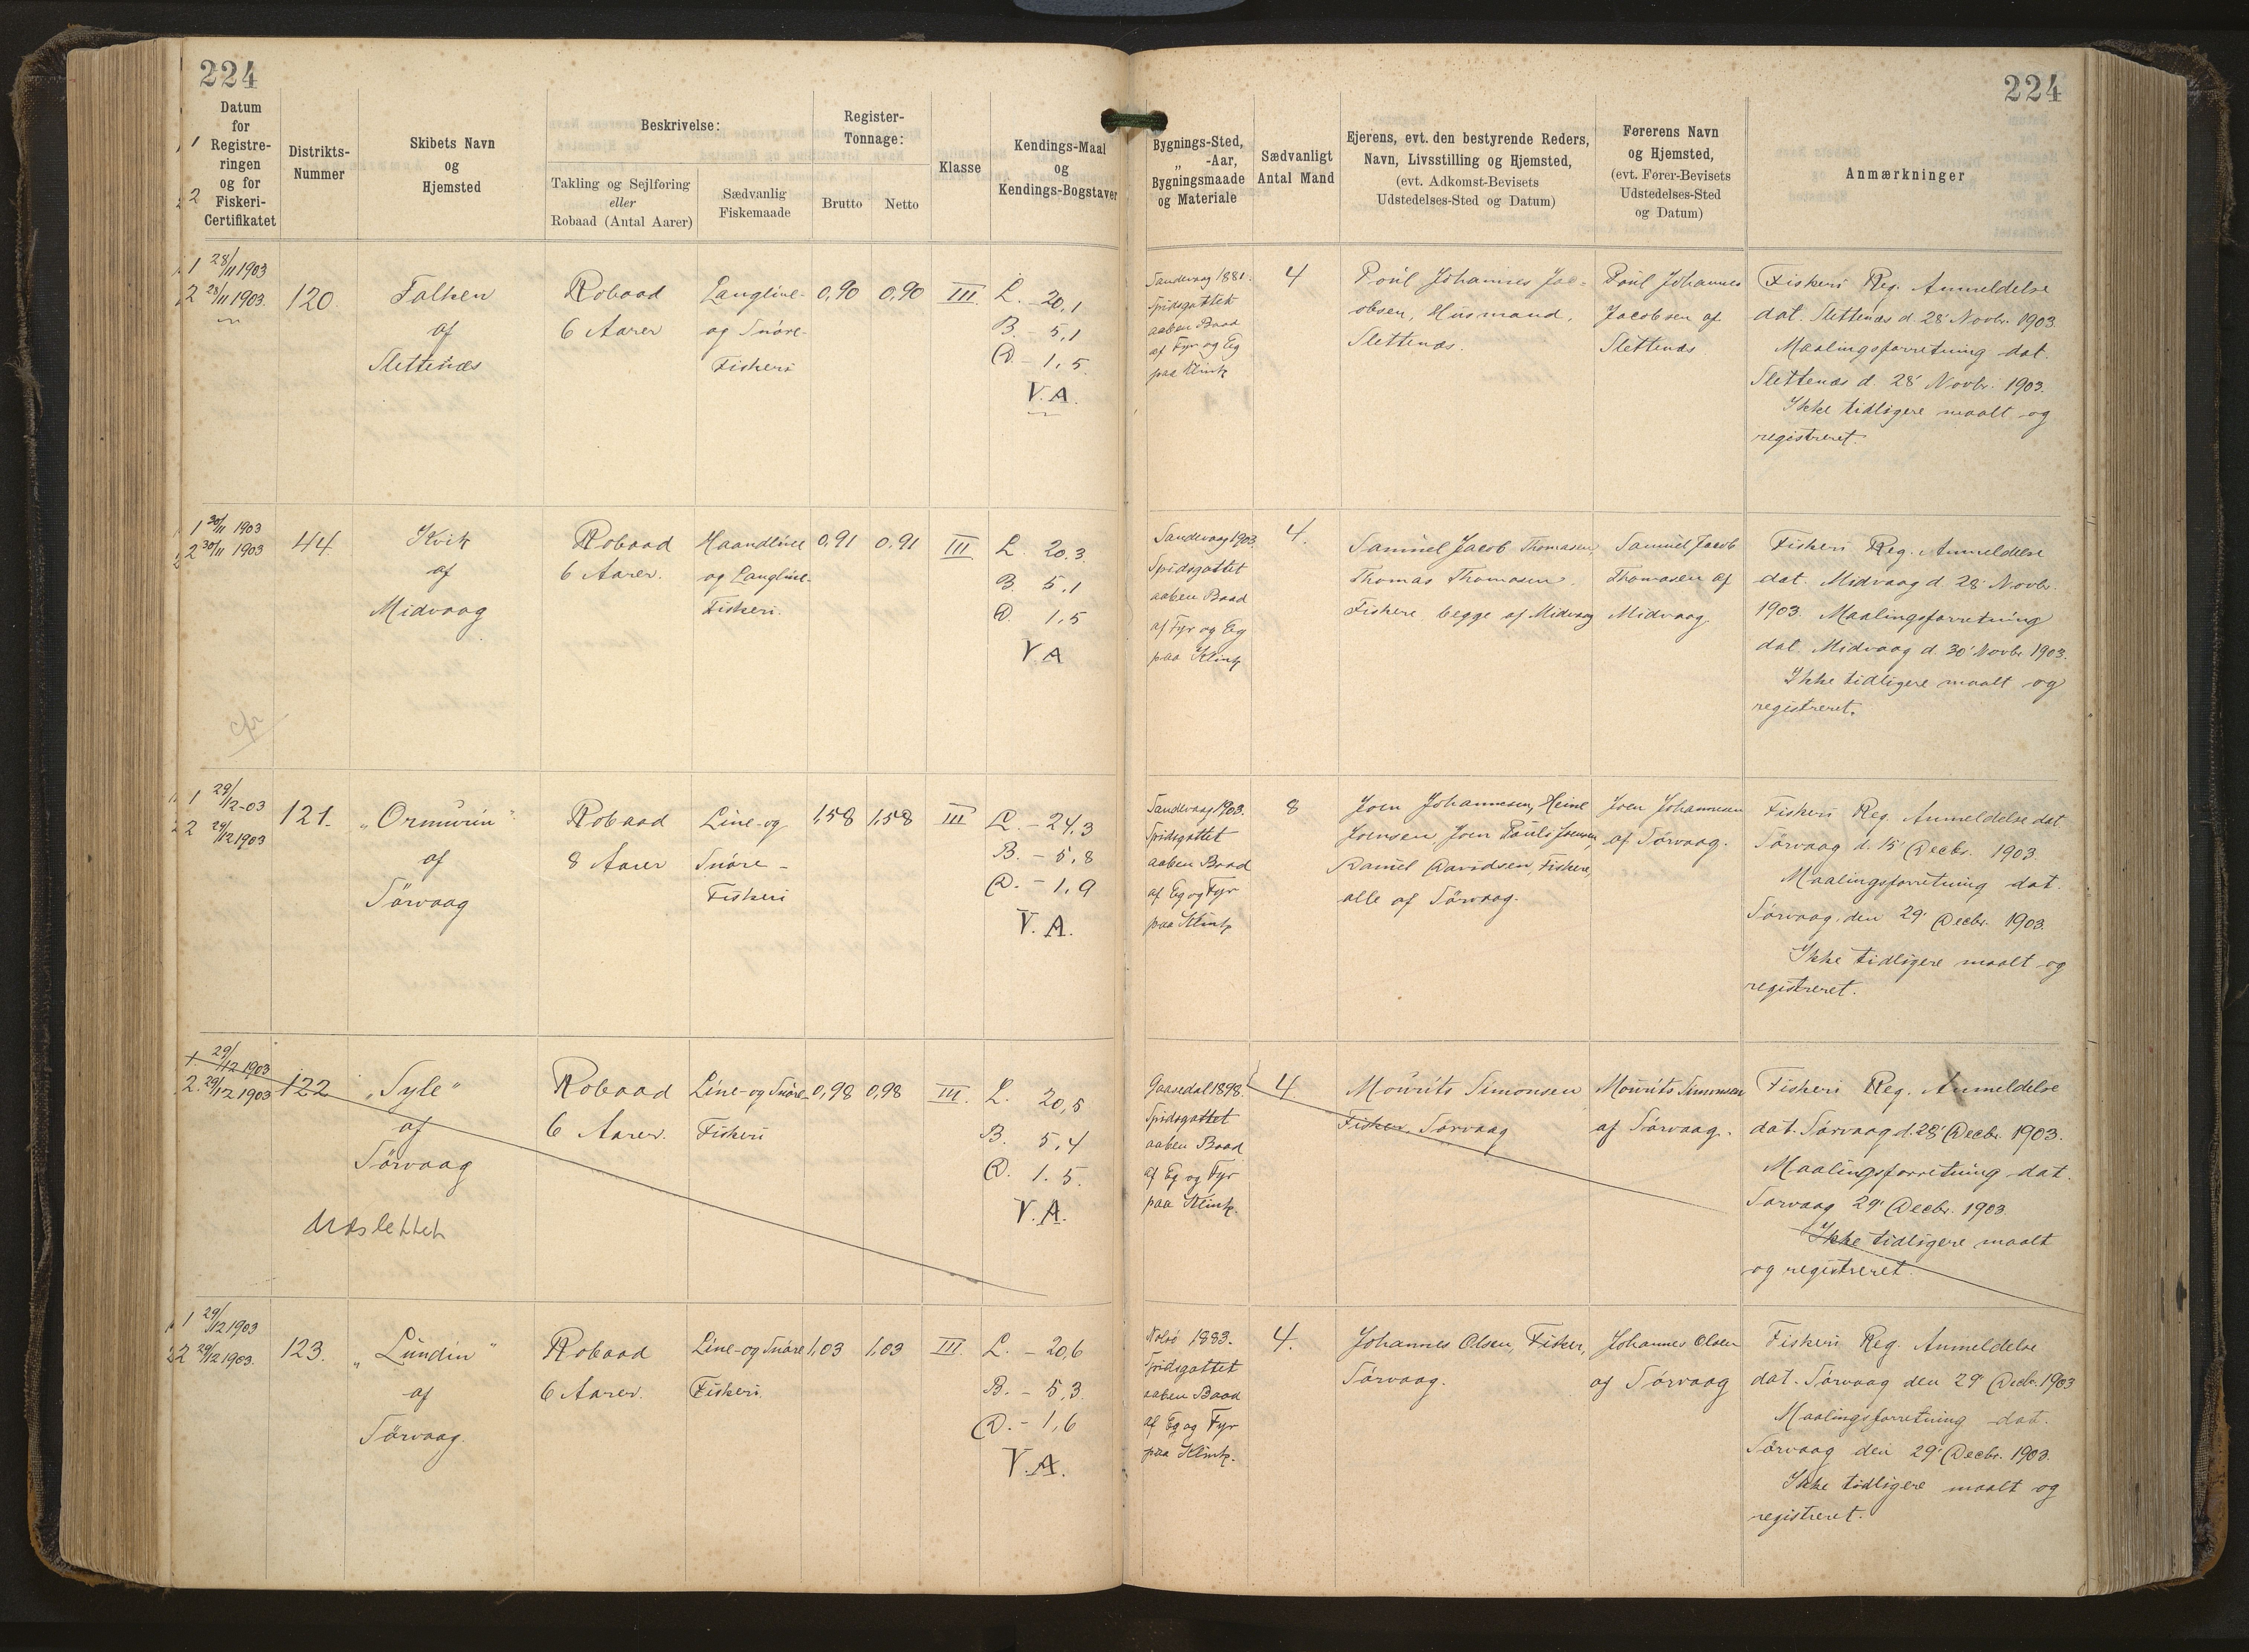 224
224
Datum
for
Registre-
ringen
og for
Fiskeri-
Certifikatet
1
2
Distrikts-
Nummer
Skibets Navn
og
Hjemsted
Beskrivelse:
Takling og Sejlføring
eller
Robaad (Antal Aarer)
Sædvanlig
Fiskemaade
Register-
Tonnage:
Brutto
Netto
Klasse
Kendings-Maal
og
Kendings-Bogstaver
Bygnings-Sted,
„ -Aar,
Bygningsmaade
og Materiale
Sædvanligt
Antal Mand
Ejerens, evt. den bestyrende Reders,
Navn, Livsstilling og Hjemsted,
(evt. Adkomst-Bevisets
Udstedelses-Sted og Datum)
Førerens Navn
og Hjemsted,
(evt. Fører-Bevisets
Udstedelses-Sted
og Datum)
Anmærkninger
1 28/11 1903
2 28/11 1903.
120.
Falken
af
Slettenæs
Robaad
6 Aarer
Langline-
og Snøre-
Fiskeri
0,90
0,90
III.
L. - 20,1
B. - 5,1
D. - 1,5.
V.A.
Sandevaag 1881.
Spidsgattet
aaben Baad
af Fyr og Eg
paa Klink
4
Poul Johannes Jac-
obsen, Husmand,
Slettenæs.
Poul Johannes
Jacobsen af
Slettenæs
Fiskeri Reg. Anmeldelse
dat. Slettenæs d. 28' Novbr. 1903.
Maalingsforretning dat.
Slettenæs d. 28' Novbr. 1903.
Ikke tidligere maalt og
registreret.
1 30/11 1903
2 30/11 1903
44.
Kvik
af
Midvaag
Robaad
6 Aarer.
Haandline
og Langline-
Fiskeri.
0,91
0,91
III
L. 20,3
B. 5,1
D. 1,5
V.A
Sandevaag 1903.
Spidsgattet
aaben Baad
af Fyr og Eg
paa Klink
4.
Samuel Jacob Thomasen,
Thomas Thomasen,
Fiskere begge af Midvaag
Samuel Jacob
Thomasen af
Midvaag.
Fiskeri Reg. Anmeldelse
dat. Midvaag d. 28' Novbr.
1903. Maalingsforretning
dat. Midvaag d. 30' Novbr. 1903.
Ikke tidligere maalt og
registreret.
cfr
1 29/12-03
2 29/12 1903
121.
„Ormurin“
af
Sörvaag
Robaad
8 Aarer
Line- og
Snøre -
Fiskeri
1,58
1,58
III
L. - 24,3
B. - 5,8
D. - 1,9
V.A.
Sandevaag 1903.
Spidsgattet
aaben Baad
af Eg og Fyr
paa Klink
8
Joen Johannesen, Heine
Joensen, Joen Pauli Joensen,
Daniel Davidsen, Fiskere,
alle af Sörvaag.
Joen Johannesen
af Sörvaag.
Fiskeri Reg. Anmeldelse dat
Sörvaag d. 15' Decbr. 1903.
Maalingsforretning dat.
Sörvaag, den 29' Decbr. 1903.
Ikke tidligere maalt og
registreret.
1 29/12 1903
2. 29/12 1903
122
„Syle“
af
Sörvaag
Udslettet
Robaad
6 Aarer.
Line- og Snøre-
Fiskeri
0,98
0,98
III.
L. 20,5
B. 5,4
D. 1.5.
V.A.
Gaasedal 1898.
Spidsgattet
aaben Baad
af Eg og Fyr
paa Klink.
4.
Mourits Simonsen
Fisker. Sörvaag
Mourits Simonsen
af Sörvaag.
Fiskeri Reg. Anmeldelse
dat. Sörvaag d. 28' Decbr. 1903.
Maalingsforretning dat.
Sörvaag 29' Decbr. 1903.
Ikke tidligere maalt
og registreret.
1 29/12 1903
2 29/12 1903.
123.
„Lundin“
af
Sörvaag.
Robaad
6 Aarer.
Line- og Snøre
Fiskeri.
1,03
1,03
III.
L. - 20,6
B. - 5,3
D. - 1,6
V.A.
Nolsö 1883.
Spidsgattet
aaben Baad
af Eg og Fyr
paa Klink.
4.
Johannes Olsen, Fisker,
Sörvaag.
Johannes Olsen
af Sörvaag
Fiskeri Reg. Anmeldelse
dat. Sörvaag den 29' Decbr. 1903
Maalingsforretning dat.
Sörvaag den 29' Decbr. 1903.
Ikke tidligere maalt og
registreret.